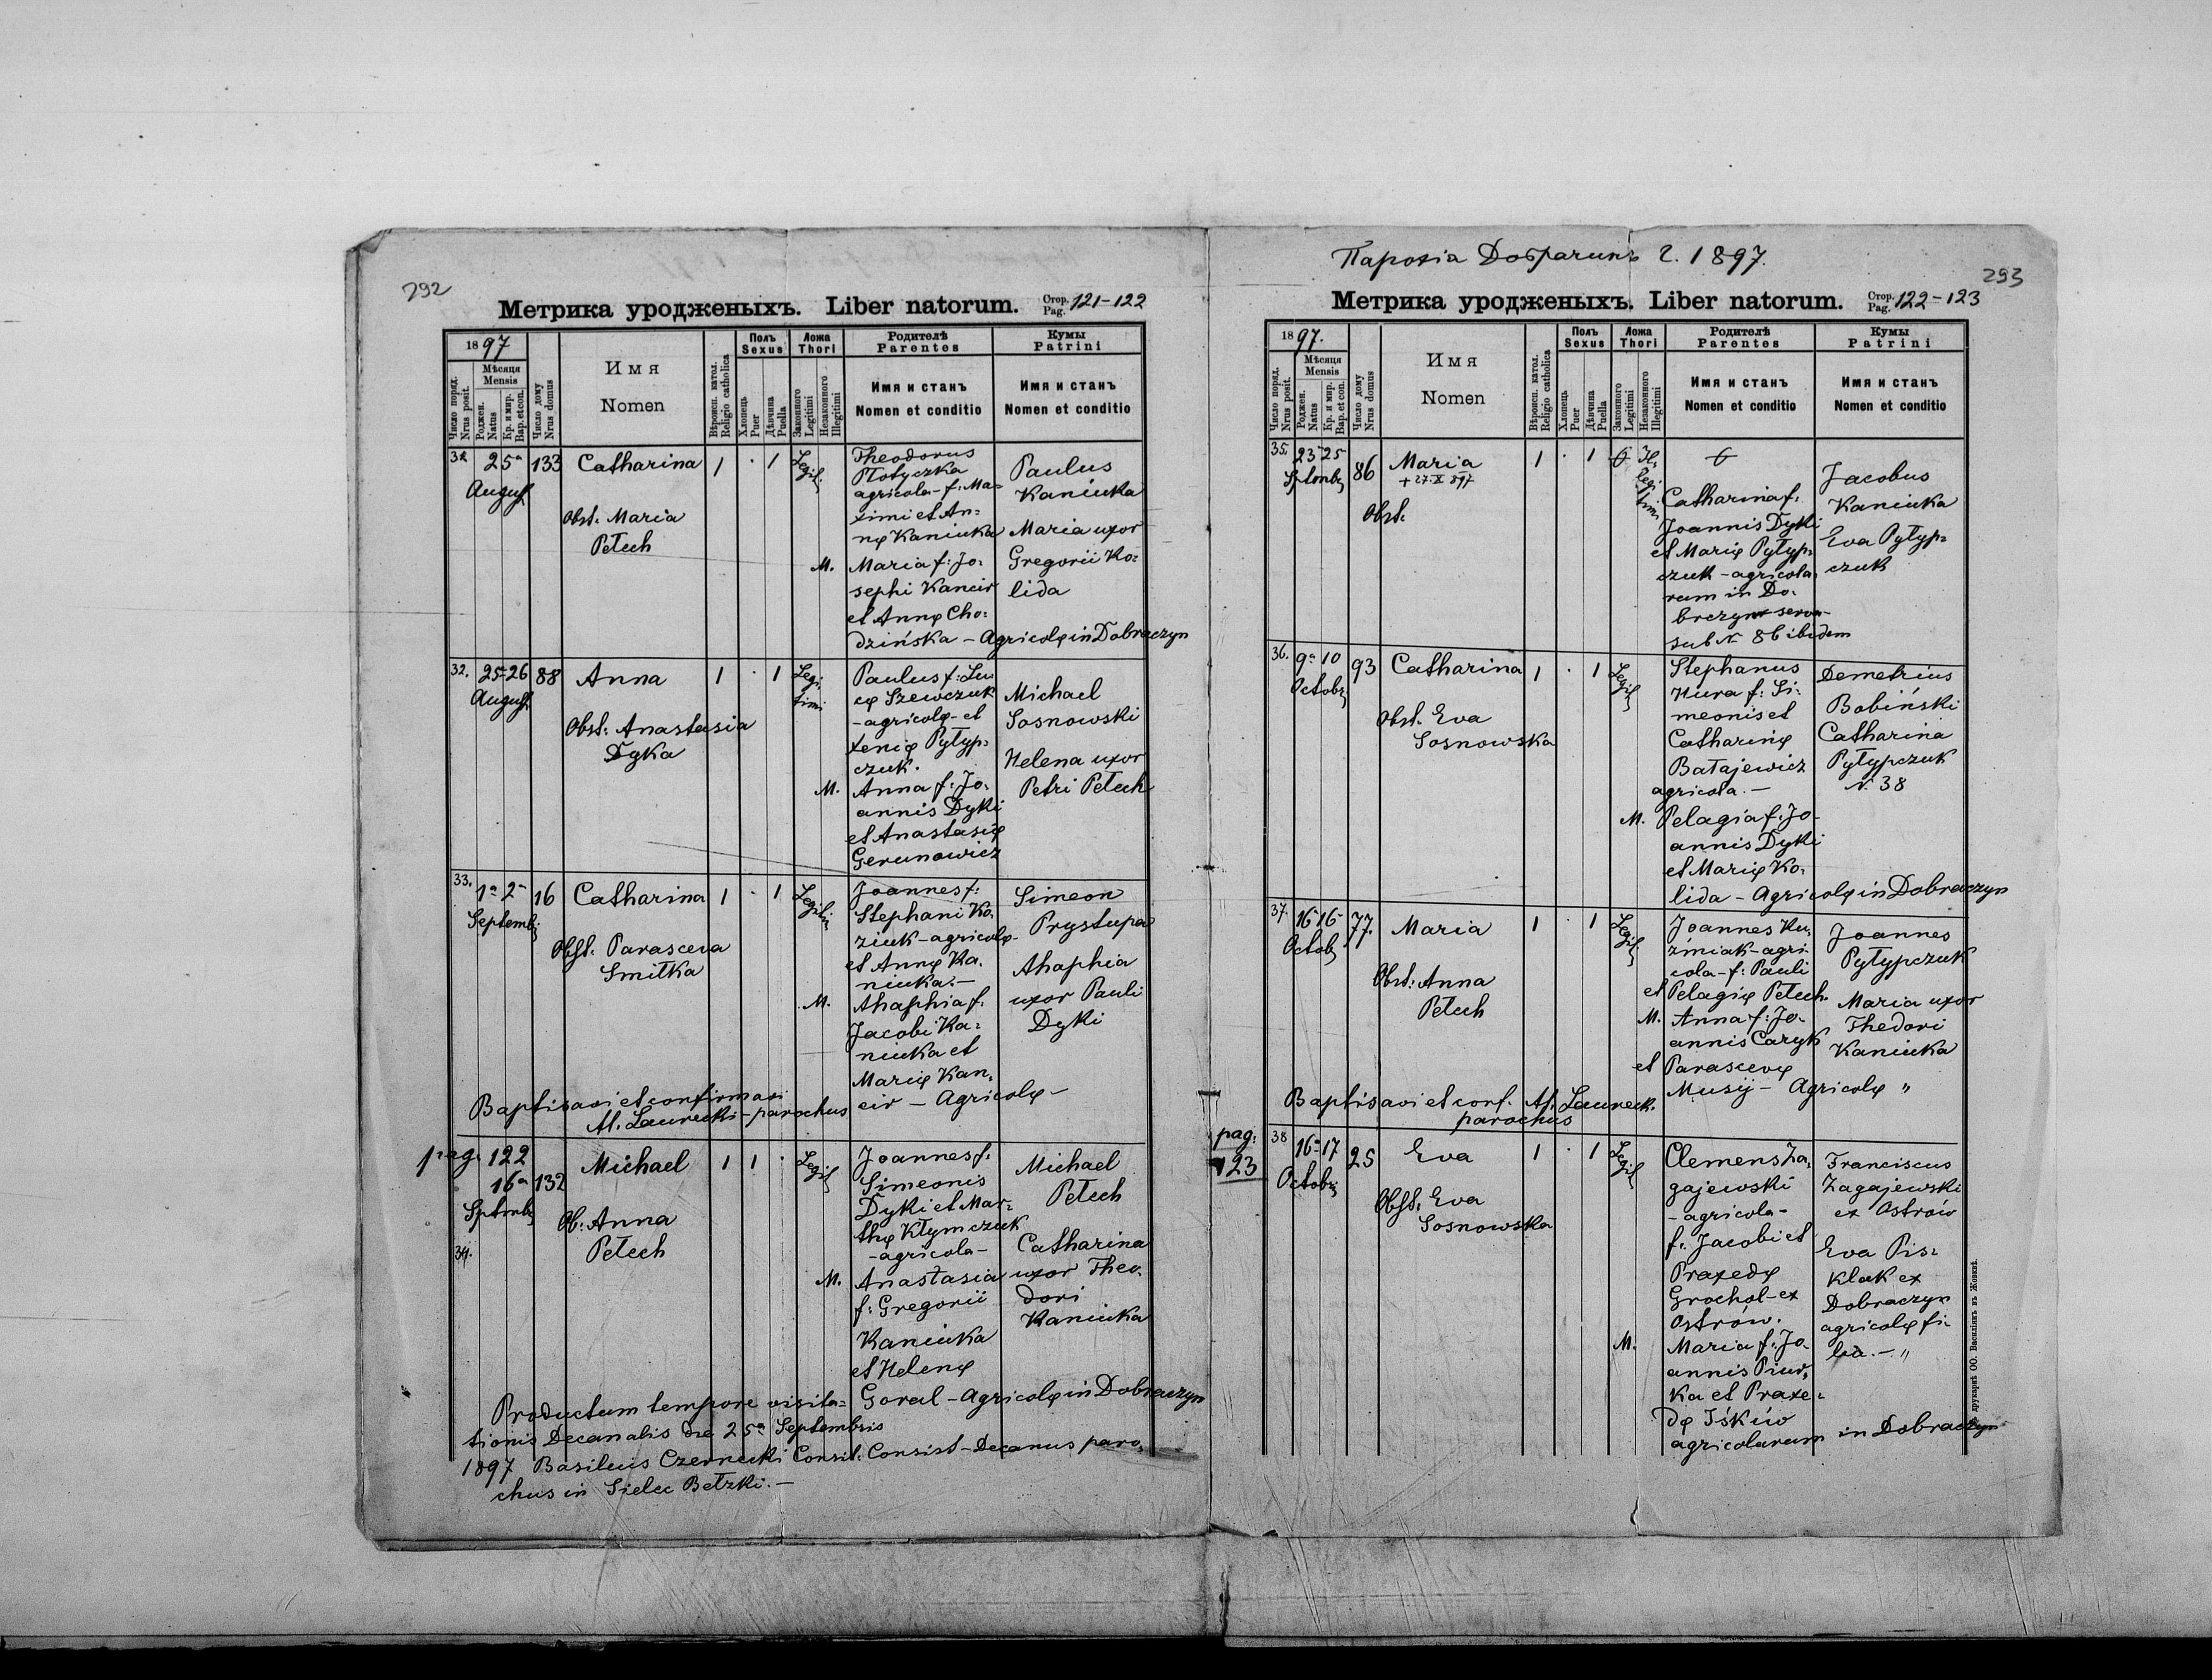 292
Метрика уродженыхъ. Liber natorum. Стор. Pag. 121-122
1897
Мѣсяця Mensis
Число поряд. Nrus posit.
Роджен. Natus
Кр. и мир. Bap. et con.
Число дому Nrus domus
Имя
Nomen
Вѣроисп. катол. Religio catholica
Полъ Sexus
Хлопець Puer
Дѣвчина Puella
Ложа Thori
Законного Legitimi
Незаконного Illegitimi
Родителѣ
Parentes
Имя и станъ
Nomen et conditio
Кумы
Patrini
Имя и станъ
Nomen et conditio
25a 133 Catharina 1 · 1 Legit.
August
Obst. Maria
Petech
Theodorus
Płotyczka
agricola - f: Ma=
ximi et An=
nę Kaniuka
M. Maria f: Jo=
sephi Kancir
et Annę Cho=
dzińska - Agricolę in Dobraczyn
Paulus
Kaniuka
Maria uxor
Gregorii Ko=
lida
32. 25-26 88 Anna 1 · 1 Legi
timi
August
Obst: Anastasia
Dyka
Paulus f: Lu
cę Szewczuk
- agricolę - et
Xenię Pyłyp=
czuk.
M. Anna f: Jo.
annis Dyki
et Anastasię
Gerunowicz
Michael
Sosnowski
Helena uxor
Petri Petech
33. 1a 2a 16 Catharina 1 · 1
Septemb
Obst. Parasceva
Smitka
Joannes f:
Stephani Ko.
ziuk - agricolę -
et Annę Ka.
niuka. -
M. Ahaphia f:
Jacobi Ka=
niuka et
Marię Kan.
cir - Agricolę -
Simeon
Prystupa
Ahaphia
uxor Pauli
Dyki
Baptisavi et confirmavi
Al. Laurecki - parochus
pag. 122
16a 132 Michael 1 1 · Legit
Sptmb
34.
Ob: Anna
Petech
Joannes f:
Simeonis
Dyki et Mar=
thę Kłymczuk
- agricola -
M. Anastasia
f: Gregorii
Kaniuka
et Helenę
Goral - Agricolę in Dobraczyn
Michael
Petech
Catharina
uxor Theo.
dori
Kaniuka
Productum tempore visita=
tionis Decanalis die 25a Septembris
1897 Basilius Czernecki Consil: Consist - Decanus paro.
chus in Sielec Bełzki. -
Парохія Добрачинъ г. 1897.
293
Метрика уродженыхъ. Liber natorum. Стор. Pag. 122-123
1897.
Мѣсяця Mensis
Число поряд. Nrus posit.
Роджен. Natus
Кр. и мир. Bap. et con.
Число дому Nrus domus
Имя
Nomen
Вѣроисп. катол. Religio catholica
Полъ Sexus
Хлопець Puer
Дѣвчина Puella
Ложа Thori
Законного Legitimi
Незаконного Illegitimi
Родителѣ
Parentes
Имя и станъ
Nomen et conditio
Кумы
Patrini
Имя и станъ
Nomen et conditio
35. 23 25 86 Maria 1 · 1 Il.
legi
timi
Sptmb
+ 27. X 897
Obst.
Catharina f:
Joannis Dyki
et Marię Pyłyp=
czuk - agricola.
rum in Do.
brczyn serva-
sub N 86 ibidem
Jacobus
Kaniuka
Eva Pyłyp=
czuk
36. 9a 10 93 Catharina 1 · 1 Legit
Octob
Obst. Eva
Sosnowska
Stephanus
Hura f: Si=
meonis et
Catharinę
Batajewicz
agricola. -
M. Pelagia f: Jo-
annis Dyki
et Marię Ko.
lida - Agricolę in Dobraczyn
Demetrius
Bobiński
Catharina
Pyłypczuk
N. 38
37. 16 16 77. Maria 1 · 1 Legit
Octob
Obst: Anna
Petech
Joannes Ku
źmiak - agri
cola - f: Pauli
et Pelagię Petech.
M. Anna f: Jo-
annis Caryk
et Parascevę
Musij - Agricolę "
Joannes
Pyłypczuk
Maria uxor
Thedori
Kaniuka
Baptisavi et conf. Al. Laureck.
parochus
pag:
123
38 16-17 25 Eva 1 · 1 Legit
Octob
Obst. Eva
Sosnowska
Clemens Za.
gajewski
- agricola -
f: Jacobi et
Praxedę
Grochol - ex
Ostrów.
M. Maria f: Jo
annis Piur.
ka et Praxe=
dę Iśków
agricolarum in Dobraczyn
Franciscus
Zagajewski
ex Ostrów
Eva Pis=
klak ex
Dobraczyn
agricolę fi-
lia. - "
друкарнѣ ОО. Василіянъ въ Жовквѣ.